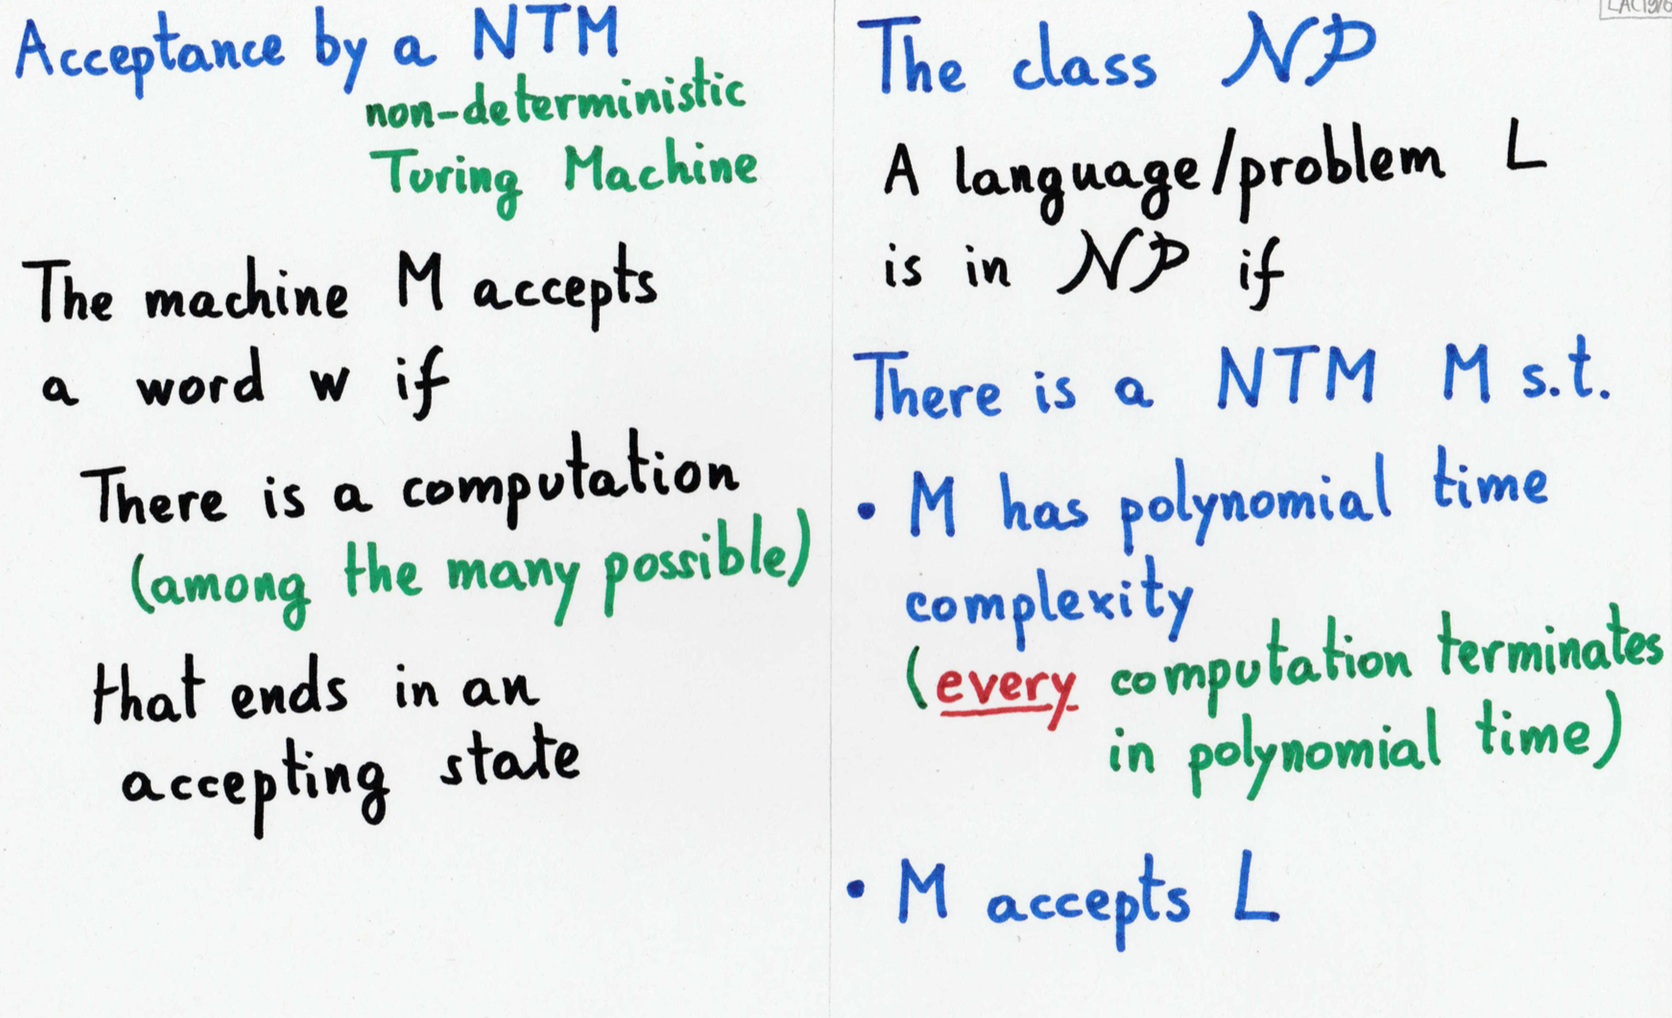 Acceptance by a NTM
non-deterministic
Turing Machine
The machine M accepts
a word w if
There is a computation
(among the many possible)
that ends in an
accepting state
The class NP
A language/problem L
is in NP if
There is a NTM M s.t.
• M has polynomial time
complexity
(every computation terminates
in polynomial time)
• M accepts L